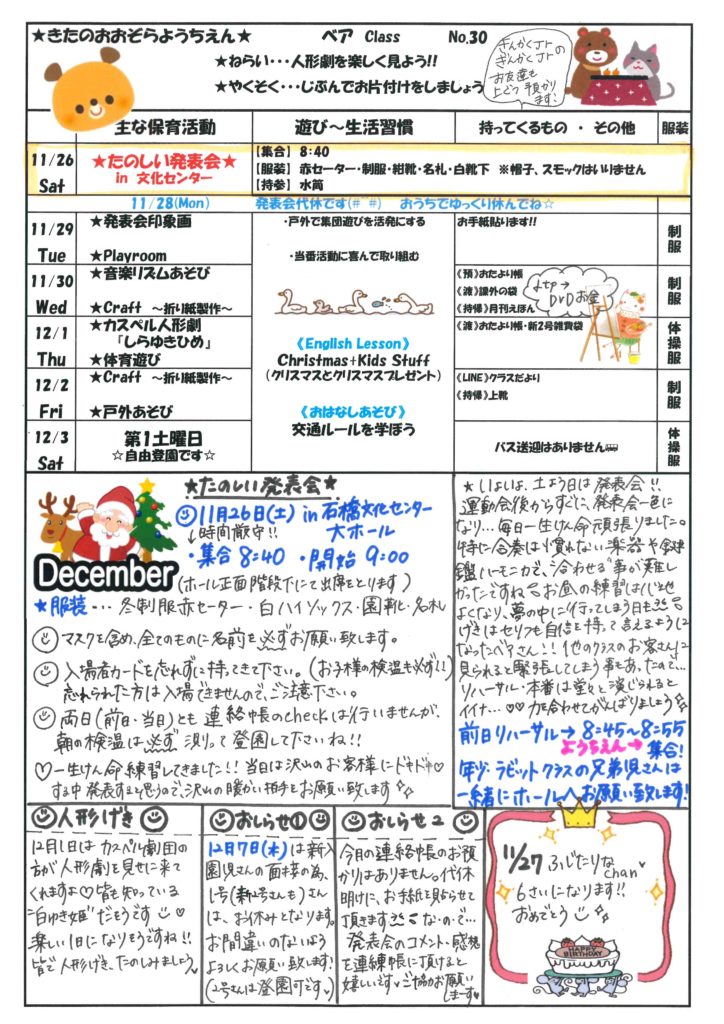 ★きたのおおぞらようちえん★ ベア Class No.30
★ねらい・・・人形劇を楽しく見よう!!
★やくそく・・・じぶんでお片付けをしましょう
きんかくJr.の
ぎんかくJr.
お友達も
上ぐつ預かり
ます。
主な保育活動 遊び～生活習慣 持ってくるもの ・ その他 服装
11/26
Sat
★たのしい発表会★
in 文化センター
【集合】 8:40
【服装】 赤セーター・制服・紺靴・名札・白靴下 ※帽子、スモックはいりません
【持参】 水筒
11/28(Mon) 発表会代休です(#^^#) おうちでゆっくり休んでね☆
11/29
Tue
★発表会印象画
★Playroom
・戸外で集団遊びを活発にする
・当番活動に喜んで取り組む
お手紙貼ります!!
制服
11/30
Wed
★音楽リズムあそび
★Craft ～折り紙製作～
《預》おたより帳
《渡》課外の袋
《持帰》月刊えほん
DVDお金
制服
12/1
Thu
★カスペル人形劇
「しらゆきひめ」
★体育遊び
《English Lesson》
Christmas+Kids Stuff
(クリスマスとクリスマスプレゼント)
《渡》おたより帳・新2号雑費袋
体操服
12/2
Fri
★Craft ～折り紙製作～
★戸外あそび
《おはなしあそび》
交通ルールを学ぼう
《LINE》クラスだより
《持帰》上靴
制服
12/3
Sat
第1土曜日
☆自由登園です☆
バス送迎はありません
体操服
December
★たのしい発表会★
11月26日(土) in 石橋文化センター
大ホール
↓時間厳守!!
・集合 8:40 ・開始 9:00
(ホール正面階段下にて出席をとります)
★服装… 冬制服赤セーター・白ハイソックス・園靴・名札
マスクを含め、全てのものに名前を必ずお願い致します。
入場者カードを忘れずに持ってきて下さい。(お子様の検温も必ず!!)
忘れられた方は入場できませんので、ご注意下さい。
両日(前日・当日)とも連絡帳のcheckは行いませんが、
朝の検温は必ず測って登園して下さいね!!
♡一生けん命練習してきました!! 当日は沢山のお客様にドキドキ♡
する中発表すると思うので、沢山の暖かい拍手をお願い致します
★いよいよ、土よう日は発表会!!
運動会後からすぐに、発表会一色に
なり…毎日一生けん命頑張りました。
特に合奏は慣れない楽器や鍵
盤ハーモニカで、合わせる事が難し
かったですね お昼の練習は心地
よくなり、夢の中に行ってしまう日も
げきはセリフも自信を持って言えるように
なったベアさん!! 他のクラスのお客さんに
見られると緊張してしまう事もあったので…
リハーサル・本番は堂々と演じられると
イイナ…♡♡ 力を合わせてがんばりましょう
前日リハーサル→8:45～8:55
ようちえん→集合!
年少・ラビットクラスの兄弟児さんは
一緒にホールへお願い致します!
人形げき
12月1日はカスペル劇団の
方が人形劇を見せに来て
くれますよ♡皆も知っている
"白ゆき姫"だそうです♡
楽しい1日になりそうですね!!
皆で人形げき、たのしみましょう
おしらせ①
12月7日(水)は新入
園児さんの面接の為、
1号(新2号さんも)さん
は、お休みとなります。
お間違いのないよう
よろしくお願い致します!
(2号さんは登園可です♥)
おしらせ2
今月の連絡帳のお預
かりはありません。代休
明けに、お手紙を貼らせて
頂きます な・の・で…
発表会のコメント・感想
を連絡帳に頂けると
嬉しいです♥ご協力お願い
しまーす♥
11/27 ふじたりな
chan♥
6さいになります!!
おめでとう
HAPPY
BIRTHDAY